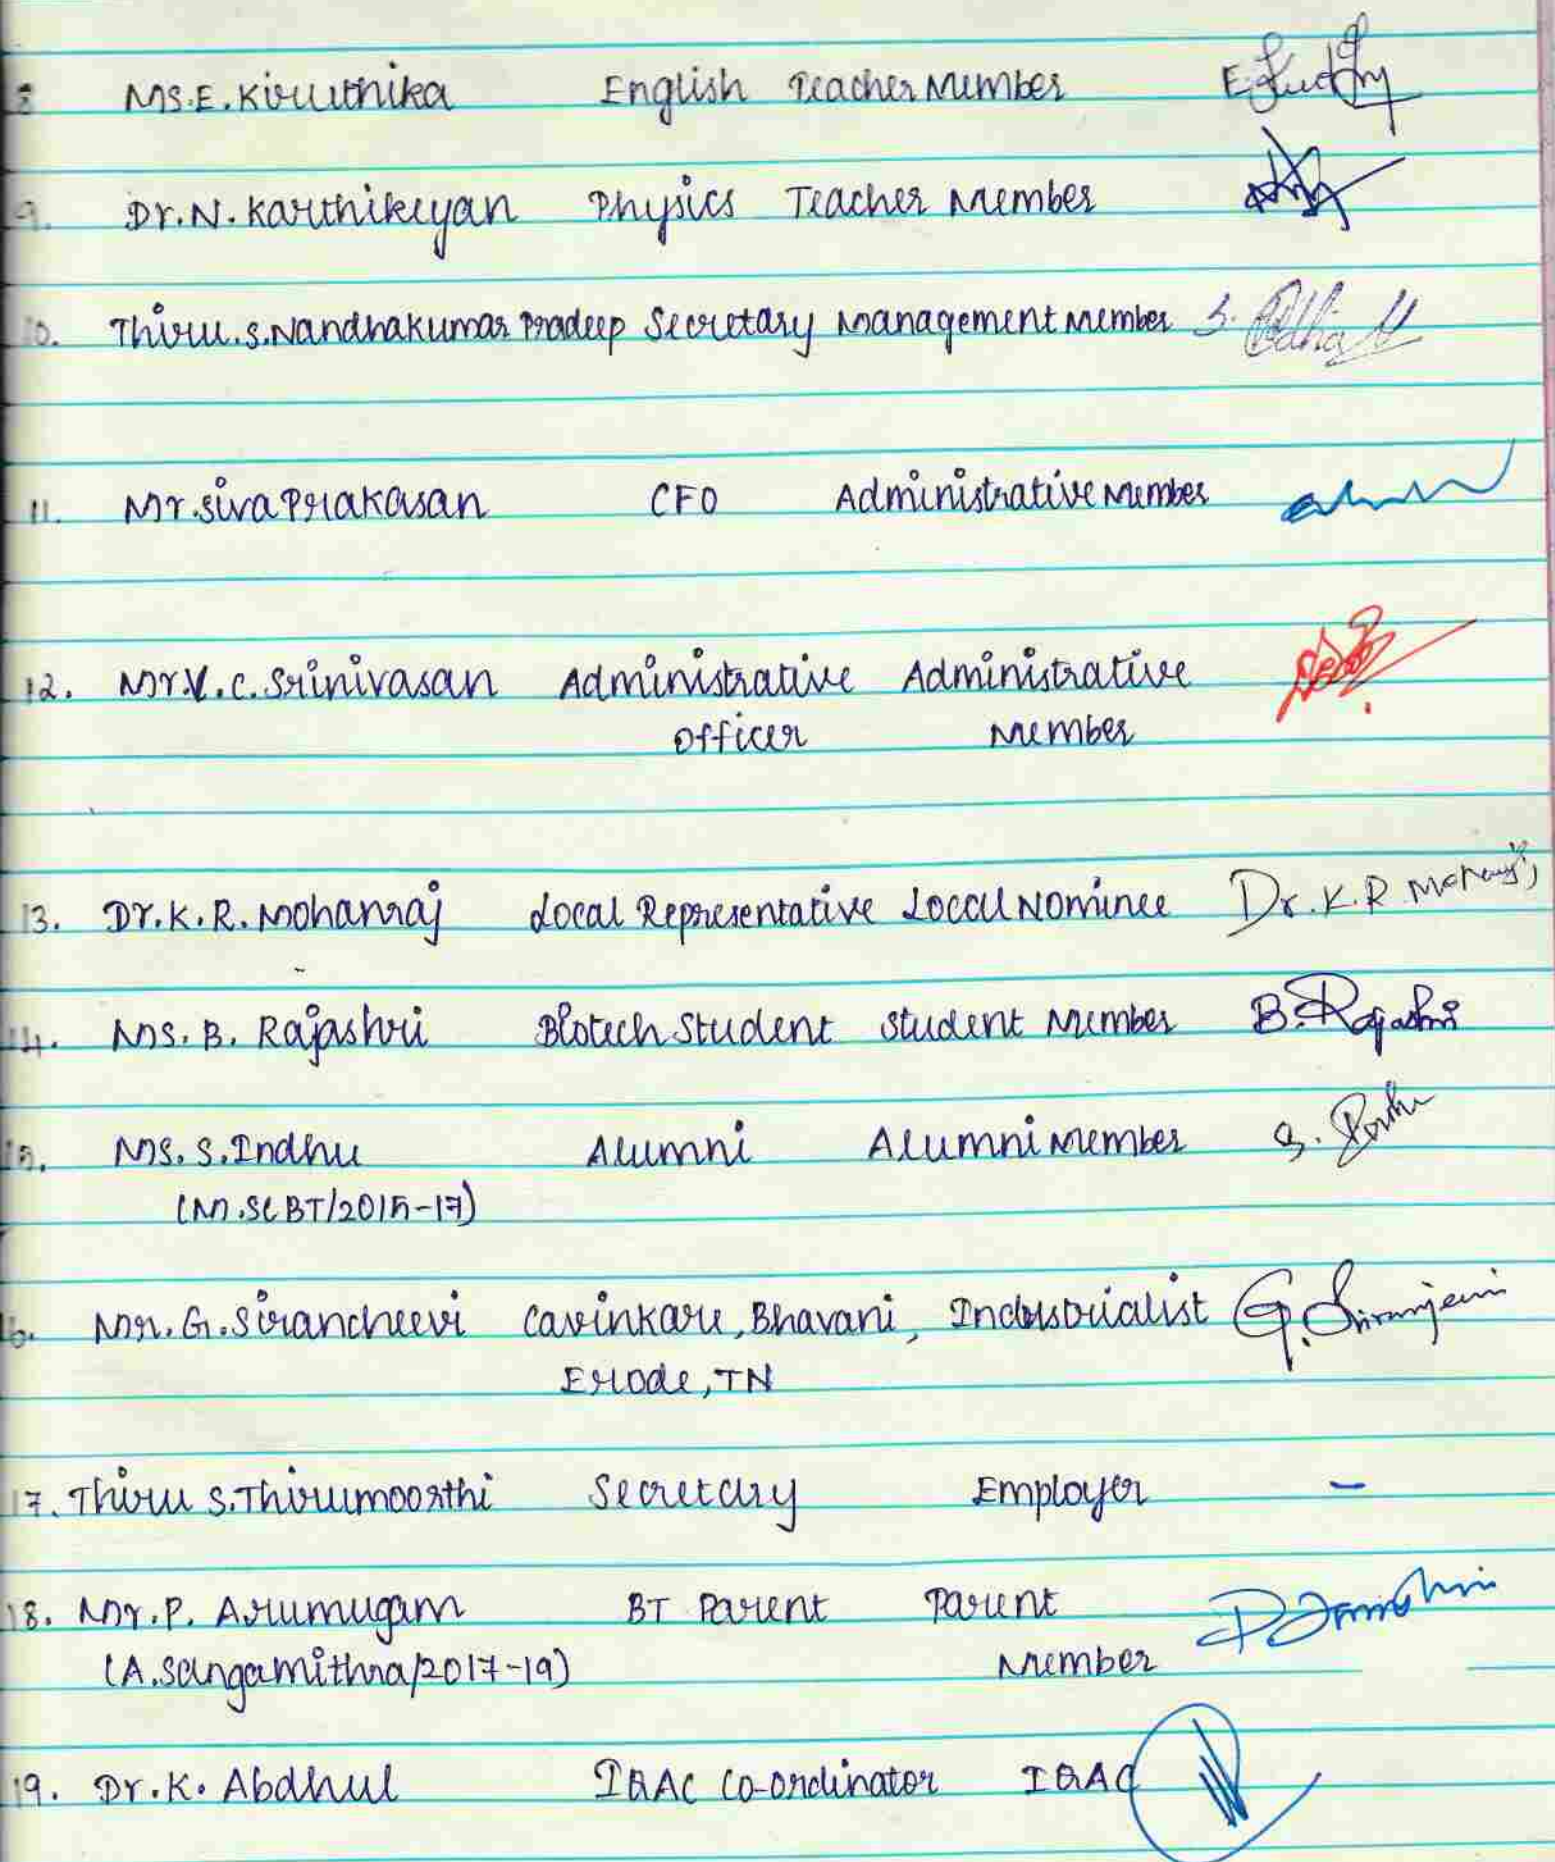 8 Ms.E.Kiruthika English Teacher Member
9. Dr.N.Karthikeyan Physics Teacher Member
10. Thiru.S.Nandhakumar Pradeep Secretary Management Member
11. Mr.SivaPrakasan CFO Administrative Member
12. Mr.V.C.Srinivasan Administrative Administrative
Officer Member
13. Dr.K.R.Mohanraj Local Representative Local Nominee Dr.K.R
14. Ms. B. Rajashri Biotech Student Student Member B.Rajashri
15. Ms. S.Indhu Alumni Alumni Member
(M.Sc BT/2015-17)
16. Mr. G.Sirancheevi Cavinkare, Bhavani, Industrialist
Erode, TN
17. Thiru S.Thirumoorthi Secretary Employer -
18. Mr.P. Arumugam BT Parent Parent
(A.Sangamithra/2017-19) Member
19. Dr.K. Abdhul IQAC Co-ordinator IQAC